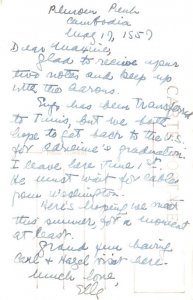 Phnom Penh
Cambodia
May 17, 1957
Dear Maxines:
Glad to receive your
two notes and keep up
with the Aarons.
has been transferred
to Tunis, but we both
hope to get back to the U.S.
for Adreine's graduation.
I leave here June 1st.
He must wait for cable
from Washington.
Here's hoping we meet
this summer, for a moment
at least.
Grand you having
Carl & Hazel visit here.
Much love,